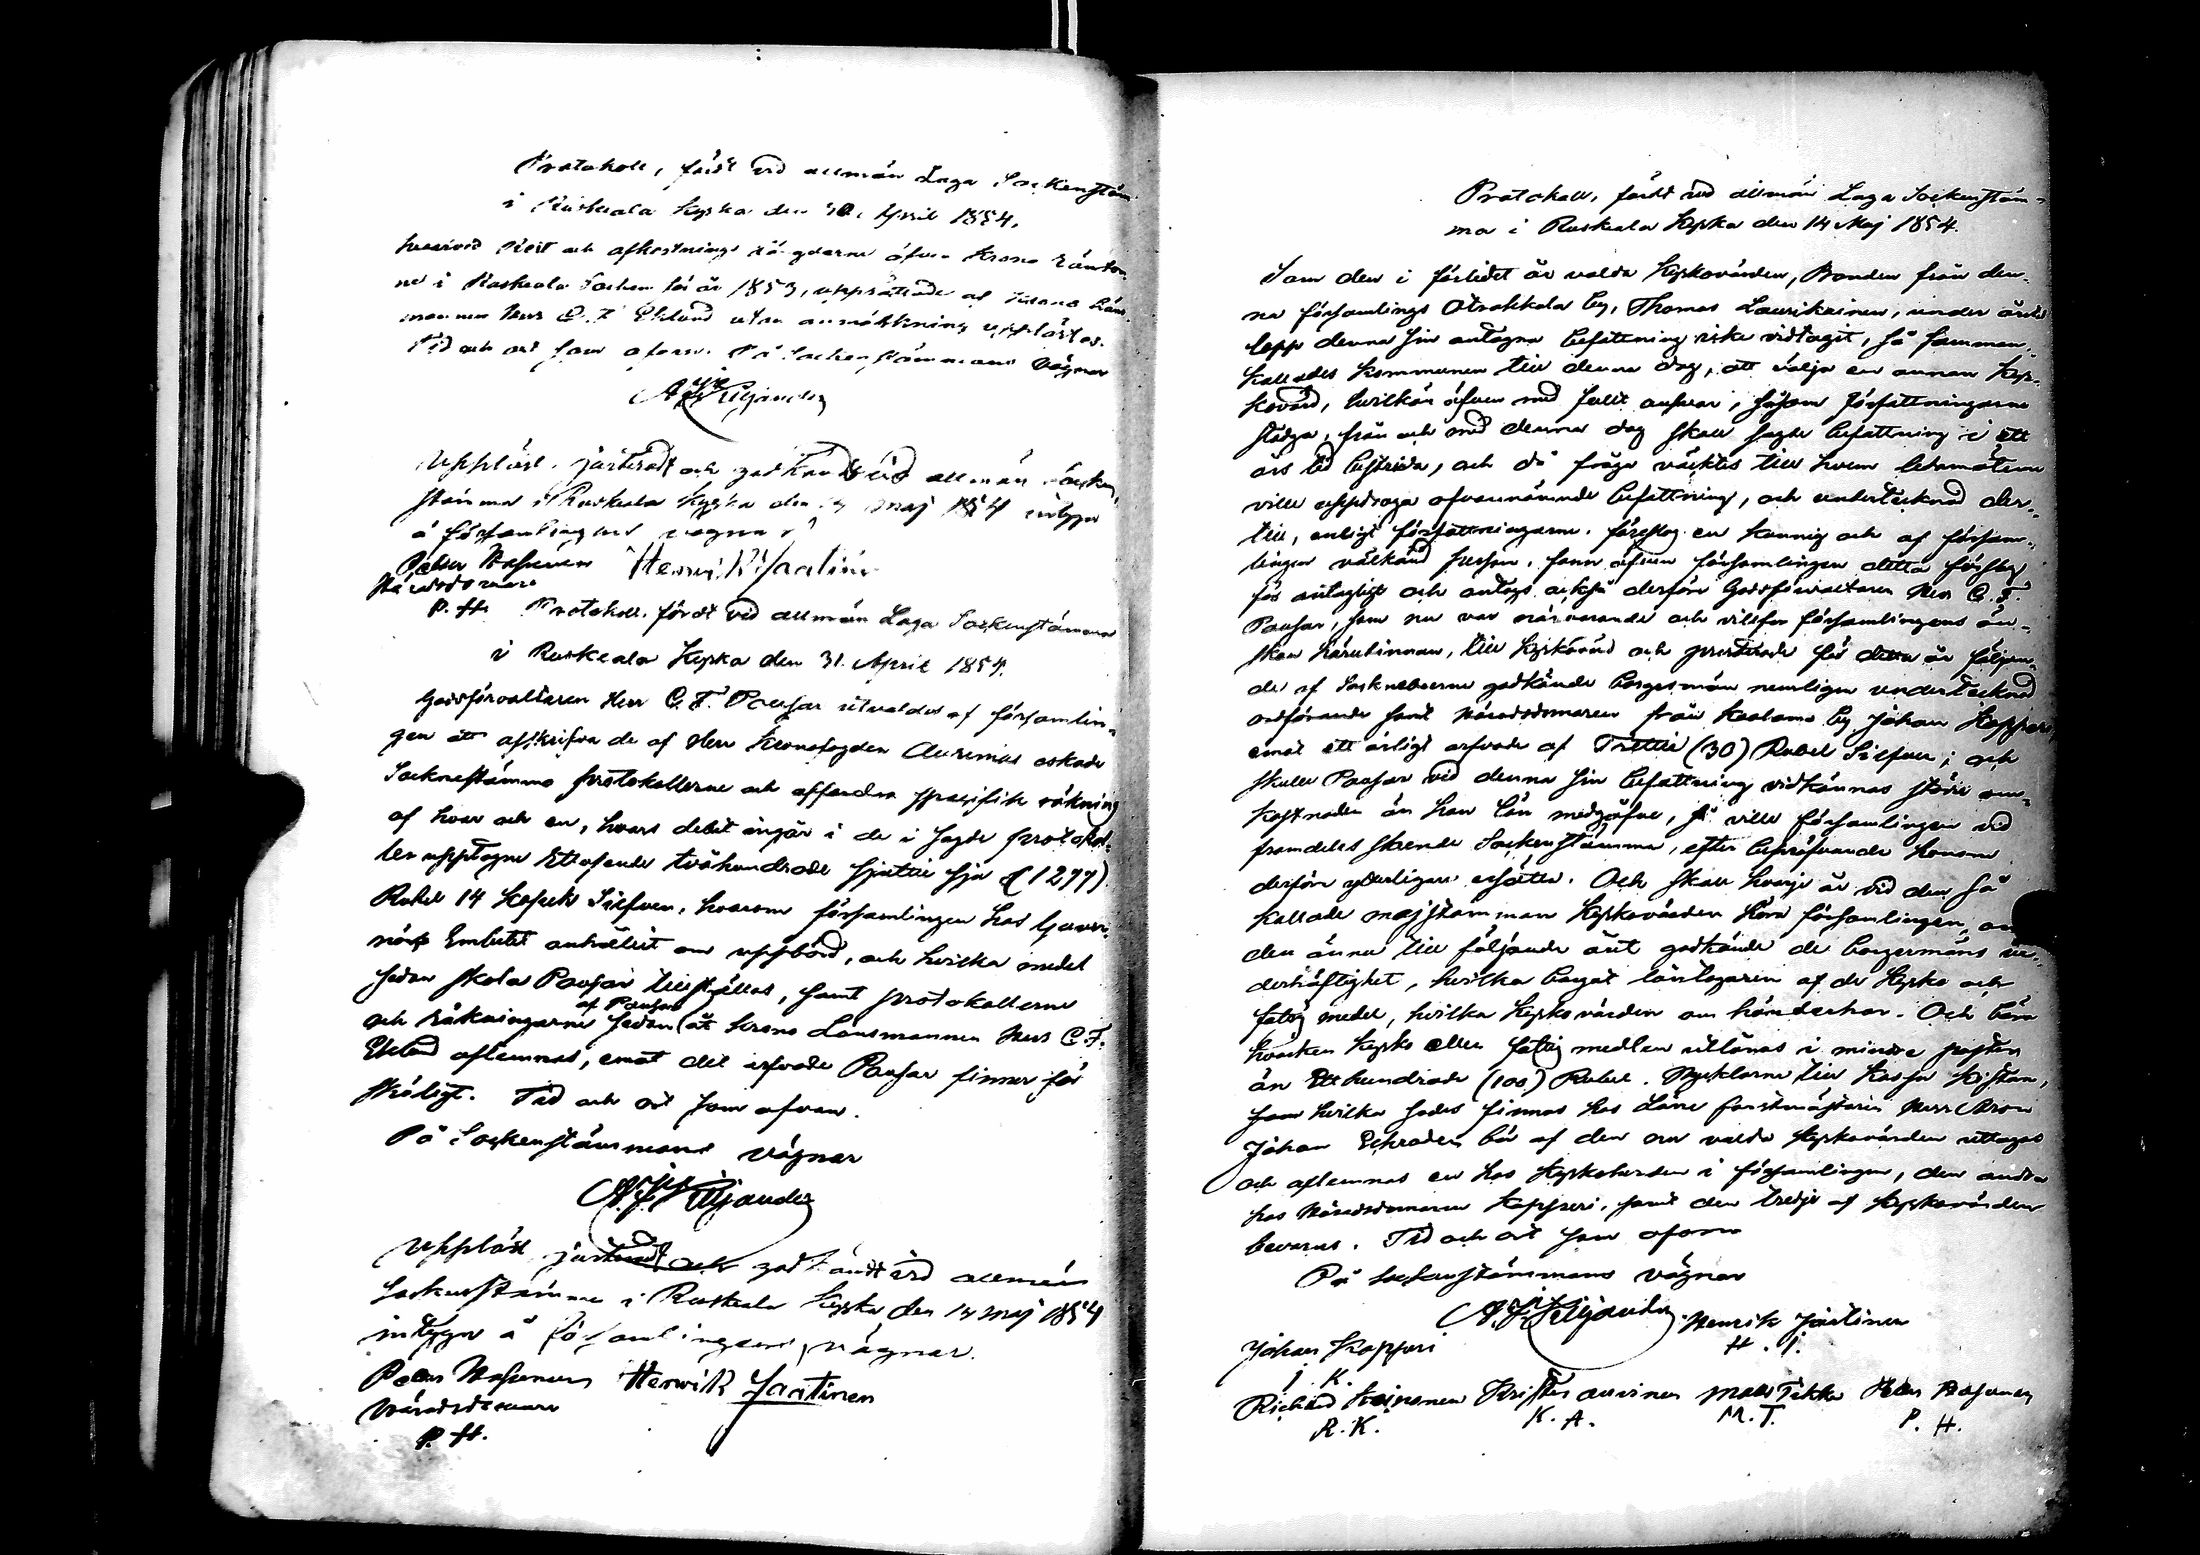 Protokoll, fördt vid allmän Laga Sockenstäm-
i Ruskeala Kyrka den 30. April 1854.
hvarvid Rest och afkortnings längderne öfver Krono Räntor-
ne i Ruskeala Socken för år 1853, upprättade af Krono Läns-
mannen Herr C. F. Eklund utan anmärkning upplästes.
Tid och ort som ofvan. På Sockenstämmans vägnar
Uppläst, justeradt och godkändt vid allmän Socken-
stämma i Ruskeala Kyrka den 14 Maj 1854 intyga
å församlingens vägnar
Henrik Jaatinen
Häradsdomare
P. H. Protokoll, fördt vid allmän Laga Sockenstämma
i Ruskeala Kyrka den 31. April 1854.
Godsförvaltaren Herr C. F. Pausar utvaldes af församlin-
gen att afskrifva de af Herr Kronofogden Aurenius äskade
Sockenstämmo protokollerne och affordra specifik räkning
af hvar och en, hvars debet ingår i de i sagde protokol-
ler upptagne Ettusende tvåhundrade sjuttio sju (1277)
Rubel 14 Kopek Silfver, hvarom församlingen hos Guver-
nörs Embetet anhållit om uppbörd, och hvilka medel
sedan skola Pausar tillställas, samt protokollerne
och Räkningarne sedan af Pausar åt Krono Länsmannen Herr C. F.
Eklund aflemnas, emot det arfvode Pausar finner för
skäligt. Tid och ort som ofvan.
På Sockenstämmans vägnar
Uppläst, justeradt och godkändt vid allmän
Sockenstämma i Ruskeala Kyrka den 14 Maj 1854
intyga å församlingens vägnar.
Henrik Jaatinen
Häradsdomare
P. H.
Protokoll, fördt vid allmän Laga Sockenstäm-
ma i Ruskeala Kyrka den 14 Maj 1854.
Som den i förledet år valda Kyrkovärden, Bonden från den-
na församlings Otrakkala by, Thomas Laurikainen, under årets
lopp denna sin antagna befattning icke vidtagit, så samman-
kallades kommunen till denna dag, att välja en annan Kyr-
kovärd, hvilken äfven med fullt ansvar, såsom författningarne
stadga, från och med denna dag skall sagde befattning i ett
års tid bestrida, och då fråga väcktes till hvem ledamöterne
ville uppdraga ofvannämnde befattning, och undertecknad der-
till, enligt författningarne, föreslog en kunnig och af försam-
lingen välkänd person, fann äfven församlingen detta förslag
för antagligt och antogs också derföre Godsförvaltaren Herr C. F.
Pausar, som nu var närvarande och villfor församlingens ön-
skan härutinnan, till Kyrkovärd och presterade för detta år följan-
de af Socknеboerne godkände borgesmän nemligen undertecknad
ordförande samt Häradsdomaren från Kaalamo by Johan Kopperi
emot ett årligt arfvode af Trettio (30) Rubel Silfver; och
skulle Pausar vid denna sin befattning vidkännas större om-
kostnader än hans lön medgåfve, så ville församlingen vid
framdeles skeende Sockenstämma, efter bepröfvande honom
derföre ytterligare ersätta. Och skall hvarje år vid den så
kallade majstämman Kyrkovärden höra församlingen, om
den ännu till följande året godkände de borgesmäns ve-
derhäftighet, hvilka borgat låntagaren af de Kyrko och
fattig medel, hvilka Kyrkovärden om händerhar. Och böra
hvarken Kyrko eller fattig medlen utlånas i mindre poster
än Etthundrade (100) Rubel. Nycklarne till Kassa Kistan,
som hvilka hades finnas hos Läne forstmästaren Herr Aron
Johan Schrader bör af den nu valda Kyrkovärden uttagas
och aflemnas en hos Kyrkoherden i församlingen, den andra
hos Häradsdomaren Kopperi, samt den tredje af Kyrkovärden
bevaras. Tid och ort som ofvan
På Sockenstämmans vägnar
Henrik Jaatinen
Johan Kopperi H. J.
J. K.
Richard Koironen Krister Auvinen Mats Tikka
R. K. K. A. M. T. P. H.